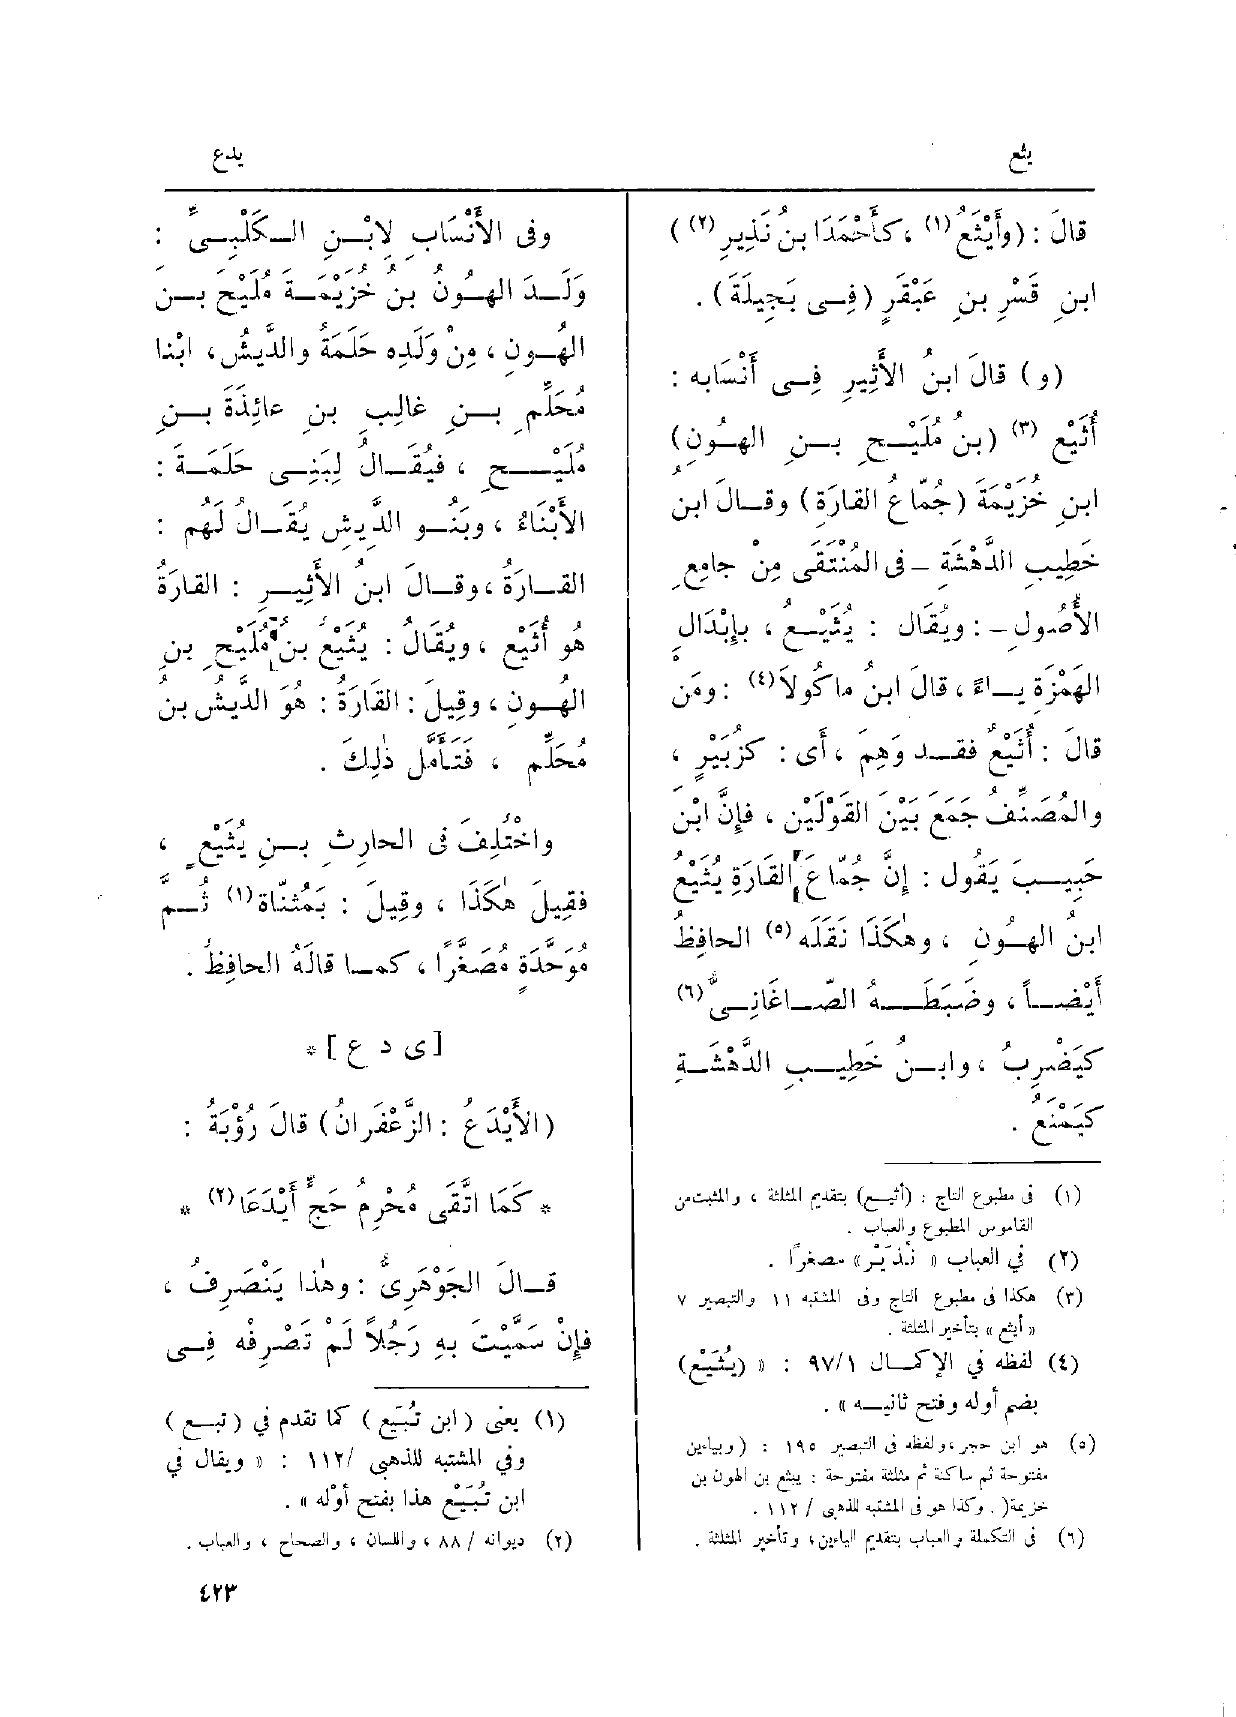 يثع
يدع
قالَ : (وأَيْثَعُ(١) ، كأَحْمَدَا بنُ نَذِيرِ(٢) )
ابنِ قَسْرِ بنِ عَبْقَرٍ (فِى بَجِيلَةَ) .
(و) قالَ ابنُ الأَثِيرِ فِى أَنْسَابِه :
أُثَيْع(٣) (بنُ مُلَيْحِ بنِ الهُونِ)
ابنِ خُزَيْمَةَ (جُمّاعُ القارَةِ) وقالَ ابنُ
خَطِيبِ الدَّهْشَةِ - فى المُنْتَقَى مِنْ جامِعِ
الأُصُولِ - : ويُقَال : يُثَيْعُ ، بإِبْدَالِ
الهَمْزَةِ ياءً ، قالَ ابنُ ماكُولاَ(٤) : ومَنْ
قالَ : أُثَيْعٌ فقد وَهِمَ ، أى : كزُبَيْرٍ ،
والمُصَنِّفُ جَمَعَ بَيْنَ القَوْلَيْنِ ، فإِنَّ ابْنَ
حَبِيبَ يَقُول : إِنَّ جُمّاعَ القارَةِ يُثَيْعُ
ابنُ الهُونِ ، وهٰكَذَا نَقَلَه(٥) الحافِظُ
أَيْضاً ، وضَبَطَهُ الصّاغَانِىُّ(٦)
كيَضْرِبُ ، وابنُ خَطِيبِ الدَّهْشَةِ
كيَمْنَعُ .
(١) فى مطبوع التاج : (أثيع) بتقديم المثلثة ، والمثبت من
القاموس المطبوع والعباب .
(٢) في العباب « نُذَيْر» مصغراً .
(٣) هكذا فى مطبوع التاج وفى المشتبه ١١ والتبصير ٧
« أيثع » بتأخير المثلثة .
(٤) لفظه في الإكمال ٩٧/١ : « (يُثَيْع)
بضم أوله وفتح ثانيه » .
(٥) هو ابن حجر ، ولفظه فى التبصير ١٩٥ : (وبياءين
مفتوحة ثم ساكنة ثم مثلثة مفتوحة : يثيع بن الهون بن
خزيمة) . وكذا هو فى المشتبه للذهبى / ١١٢ .
(٦) فى التكملة والعباب بتقديم الياءين، وتأخير المثلثة .
وفى الأَنْسَابِ لابْنِ الكَلْبِىِّ :
وَلَدَ الهُونُ بنُ خُزَيْمَةَ مُلَيْحَ بنَ
الهُونِ ، مِنْ وَلَدِه حَلَمَةُ والدِّيشُ، ابْنا
مُحَلِّمِ بنِ غالِبِ بنِ عائِذَةَ بنِ
مُلَيْحٍ ، فيُقَالُ لِبَنِى حَلَمَةَ :
الأَبْنَاءُ ، وبَنُو الدِّيشِ يُقَالُ لَهُم :
القارَةُ ، وقالَ ابنُ الأَثِيرِ : القارَةُ
هو أُثَيْع ، ويُقَالُ : يُثَيْع بن مُلَيْحِ بنِ
الهُونِ ، وقِيلَ : القَارَةُ : هُوَ الدِّيشُ بنُ
مُحَلِّم ، فتَأَمَّل ذٰلِكَ .
واخْتُلِفَ فى الحارِثِ بنِ يُثَيْعٍ ،
فقِيلَ هٰكَذَا ، وقِيلَ : بَمُثنّاة(١) ثُمَّ
مُوَحَّدَةٍ مُصَغَّراً ، كما قالَهُ الحافِظُ .
[ ى د ع ] *
(الأَيْدَعُ : الزَّعْفَرانُ) قالَ رُؤْبَةُ :
* كَمَا اتَّقَى مُحْرِمُ حَجٍّ أَيْدَعَا(٢) *
قالَ الجَوْهَرِىُّ : وهٰذا يَنْصَرِفُ ،
فإِنْ سَمَّيْتَ بهِ رَجُلاً لَمْ تَصْرِفْه فِى
(١) يعنى ( ابن تُبَيْع ) كما تقدم في ( تبع )
وفي المشتبه للذهبى /١١٢ : « ويقال في
ابن تُبَيْع هذا بفتح أوّله » .
(٢) ديوانه / ٨٨ ، واللسان ، والصحاح ، والعباب .
٤٢٣